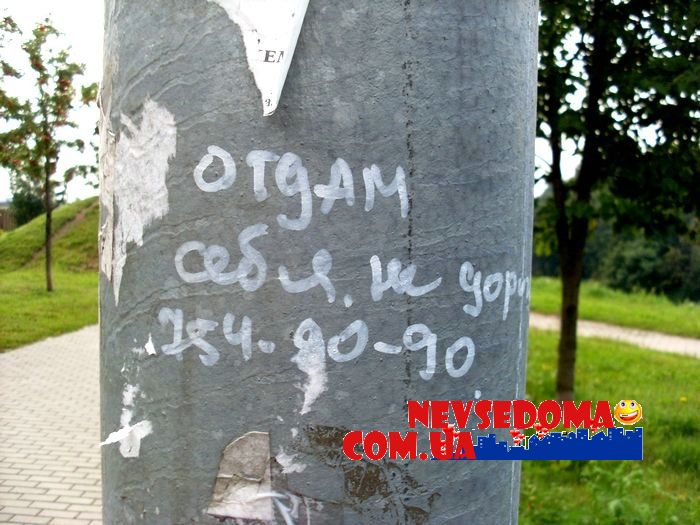 ЕМ
отдам
себя. не дор
754-90-90.
NEVSEDOMA
COM.UA